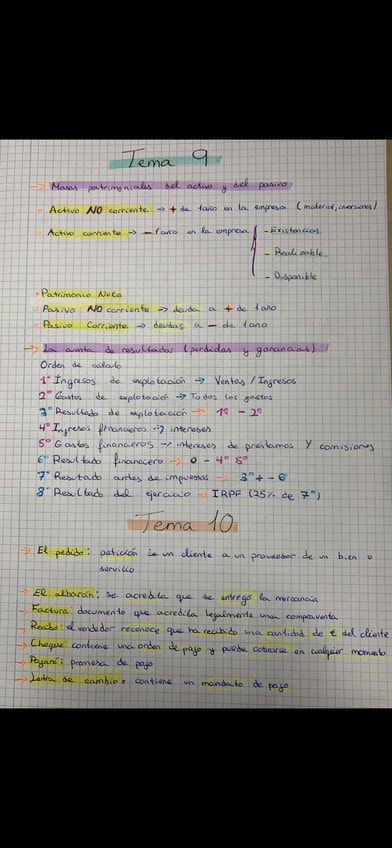 Tema 9
→ Masas patrimoniales del activo y del pasivo
• Activo NO corriente → + de 1 año en la empresa (material, inversiones)
• Activo corriente → - 1 año en la empresa
- Existencias
- Realizable
- Disponible
• Patrimonio Neto
• Pasivo NO corriente → deuda a + de 1 año
• Pasivo Corriente → deudas a - de 1 año
→ La cuenta de resultados (perdidas y ganancias)
Orden de cálculo
1º Ingresos de explotación → Ventas / Ingresos
2º Gastos de explotación → Todos los gastos
3º Resultado de explotación → 1º - 2º
4º Ingresos financieros → intereses
5º Gastos financieros → intereses de préstamos y comisiones
6º Resultado financiero → 4º 5º
7º Resultado antes de impuestos → 3º + - 6
8º Resultado del ejercicio → IRPF (25% de 7º)
Tema 10
→ El pedido: petición de un cliente a un proveedor de un bien o
servicio
→ El albarán: se acredita que se entregó la mercancía
→ Factura: documento que acredita legalmente una compraventa
→ Recibo: el vendedor reconoce que ha recibido una cantidad de € del cliente
→ Cheque: contiene una orden de pago y puede cobrarse en cualquier momento
→ Pagaré: promesa de pago
→ Letra de cambio: contiene un mandato de pago